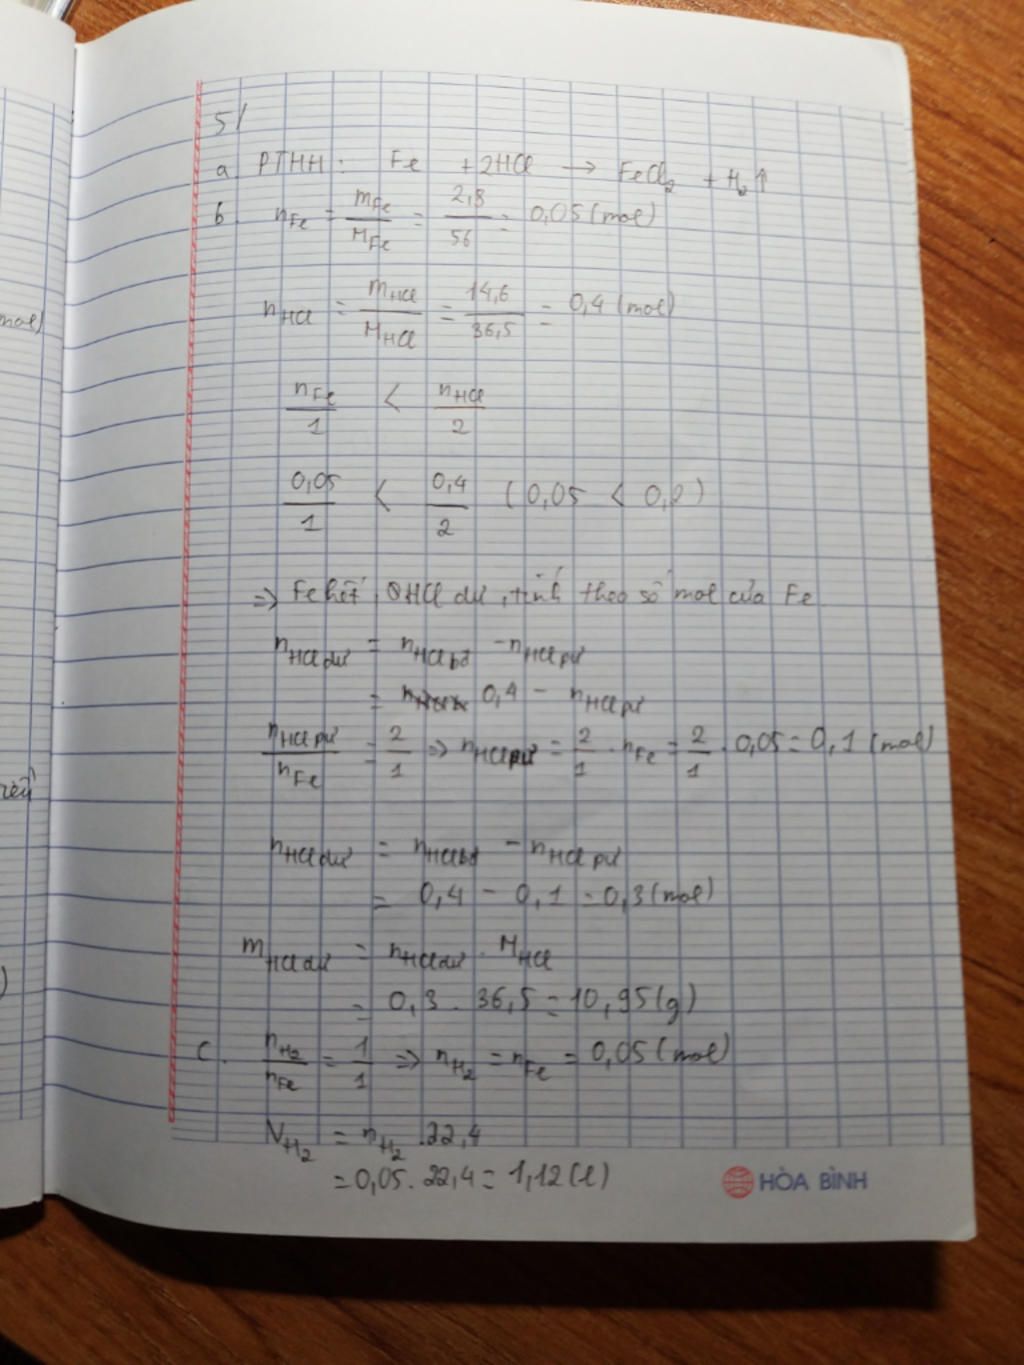 mol)
rều
)
5/
a PTHH: Fe + 2HCl → FeCl₂ + H₂↑
b. nFe = mFe/MFe = 2,8/56 = 0,05 (mol)
nHCl = mHCl/MHCl = 14,6/36,5 = 0,4 (mol)
nFe/1 < nHCl/2
0,05/1 < 0,4/2 (0,05 < 0,2)
=> Fe hết, HCl dư, tính theo số mol của Fe
nHCl dư = nHCl bđ - nHCl pư
= 0,4 - nHCl pư
nHCl pư/nFe = 2/1 => nHCl pư = 2/1 . nFe = 2/1 . 0,05 = 0,1 (mol)
nHCl dư = nHCl bđ - nHCl pư
= 0,4 - 0,1 = 0,3 (mol)
mHCl dư = nHCl dư . MHCl
= 0,3 . 36,5 = 10,95 (g)
c. nH₂/nFe = 1/1 => nH₂ = nFe = 0,05 (mol)
VH₂ = nH₂ . 22,4
= 0,05 . 22,4 = 1,12 (l)
HÒA BÌNH